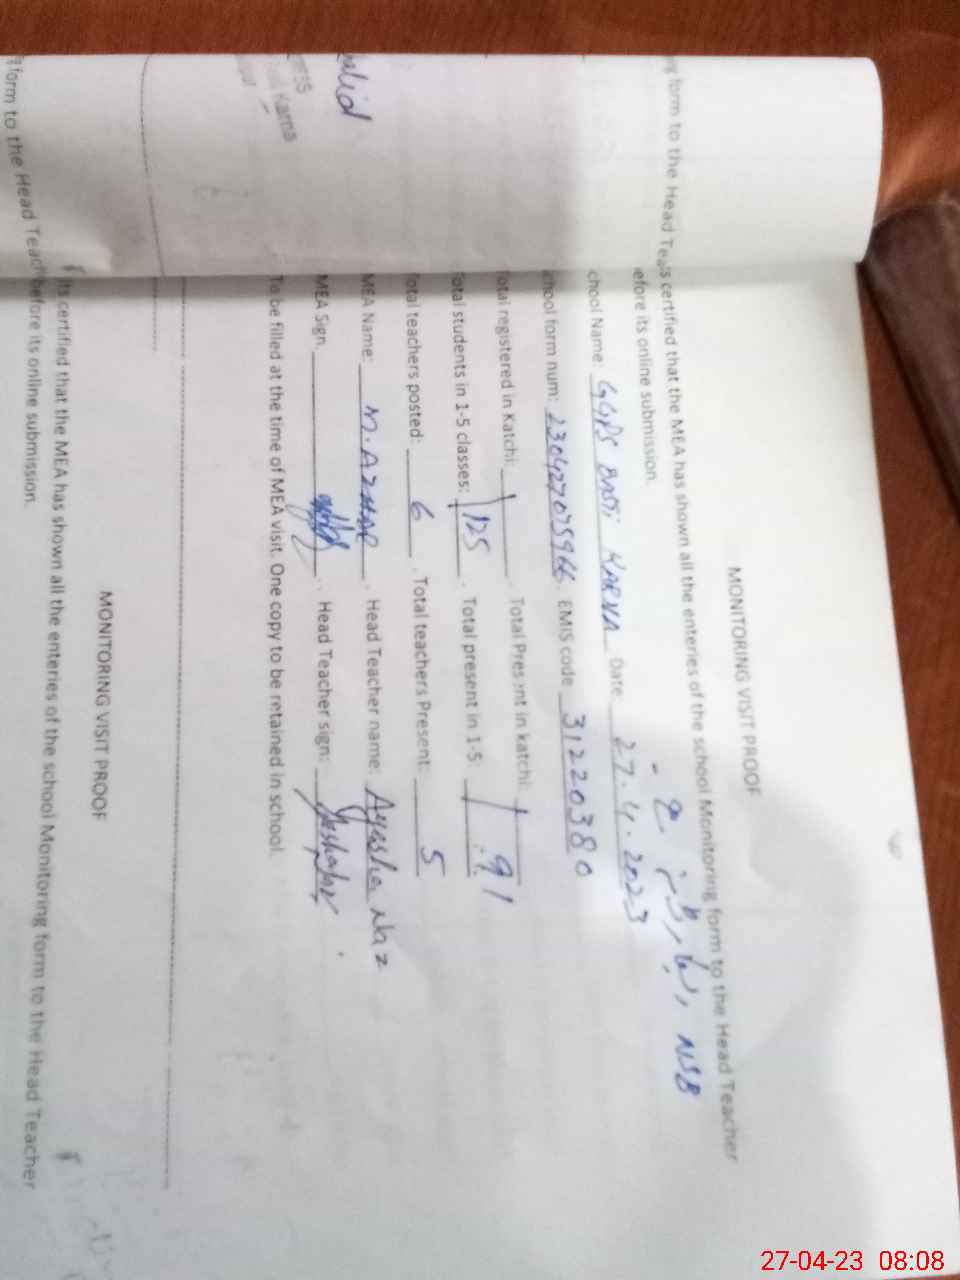 MONITORING VISIT PROOF
s certified that the MEA has shown all the enteries of the school Monitoring form to the Head Teacher
efore its online submission.
NSB
chool Name: GGPS Basti KARNA Date: 27.4.2023
chool form num: EMIS code 31220380
otal registered in Katchi: . Total Present in katchi:
otal students in 1-5 classes: 125 . Total present in 1-5: 91
Total teachers posted: 6 . Total teachers Present: 5
MEA Name: M. AZHAR . Head Teacher name: Ayesha Naz
MEA Sign. . Head Teacher sign:
To be filled at the time of MEA visit. One copy to be retained in school.
MONITORING VISIT PROOF
Its certified that the MEA has shown all the enteries of the school Monitoring form to the Head Teacher
before its online submission.
g form to the Head Tea
form to the Head Teac
Karna
27-04-23 08:08